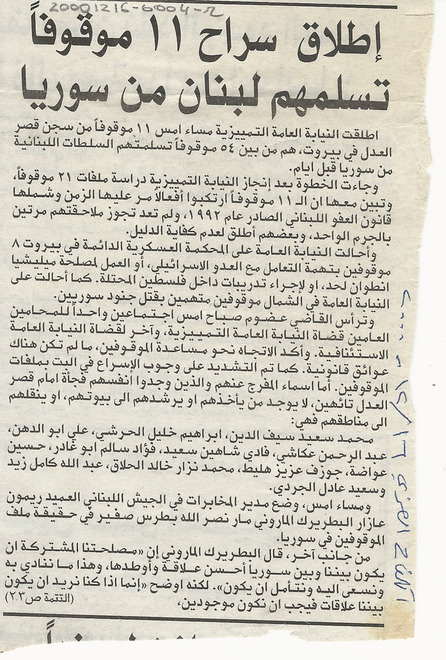 20001216-6004-2
إطلاق سراح ١١ موقوفاً
تسلمهم لبنان من سوريا
اطلقت النيابة العامة التمييزية مساء امس ١١ موقوفاً من سجن قصر
العدل في بيروت، هم من بين ٥٤ موقوفاً تسلمتهم السلطات اللبنانية
من سوريا قبل ايام.
وجاءت الخطوة بعد إنجاز النيابة التمييزية دراسة ملفات ٢١ موقوفاً،
وتبين معها ان الـ ١١ موقوفاً ارتكبوا أفعالاً مر عليها الزمن وشملها
قانون العفو اللبناني الصادر عام ١٩٩٢، ولم تعد تجوز ملاحقتهم مرتين
بالجرم الواحد، وبعضهم أطلق لعدم كفاية الدليل.
وأحالت النيابة العامة على المحكمة العسكرية الدائمة في بيروت ٨
موقوفين بتهمة التعامل مع العدو الاسرائيلي، أو العمل لمصلحة ميليشيا
انطوان لحد، او لإجراء تدريبات داخل فلسطين المحتلة. كما أحالت على
النيابة العامة في الشمال موقوفين متهمين بقتل جنود سوريين.
وترأس القاضي عضوم صباح امس اجتماعين واحداً للمحامين
العامين قضاة النيابة العامة التمييزية، وآخر لقضاة النيابة العامة
الاستئنافية. وأكد الاتجاه نحو مساعدة الموقوفين، ما لم تكن هناك
عوائق قانونية. كما تم التشديد على وجوب الإسراع في البت بملفات
الموقوفين. أما اسماء المفرج عنهم والذين وجدوا انفسهم فجأة امام قصر
العدل تائهين، لا يوجد من يأخذهم او يرشدهم الى بيوتهم، او ينقلهم
الى مناطقهم فهي:
محمد سعيد سيف الدين، ابراهيم خليل الحرشي، علي ابو الدهن،
عبد الرحمن عكاشي، فادي شاهين سعيد، فؤاد سالم ابو غادر، حسين
عواضة، جوزف عزيز هليط، محمد نزار خالد الحلاق، عبد الله كامل زيد
وسعيد عادل الجردي.
ومساء امس، وضع مدير المخابرات في الجيش اللبناني العميد ريمون
عازار البطريرك الماروني مار نصر الله بطرس صفير في حقيقة ملف
الموقوفين في سوريا.
من جانب آخر، قال البطريرك الماروني إن «مصلحتنا المشتركة ان
يكون بيننا وبين سوريا أحسن علاقة وأوطدها، وهذا ما ننادي به
ونسعى اليه ونتأمل ان يكون». لكنه اوضح «إنما اذا كنا نريد ان يكون
بيننا علاقات فيجب ان نكون موجودين،
(التتمة ص٢٣)